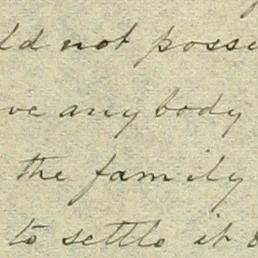 ld not posse
ve any body
the family
to settle it